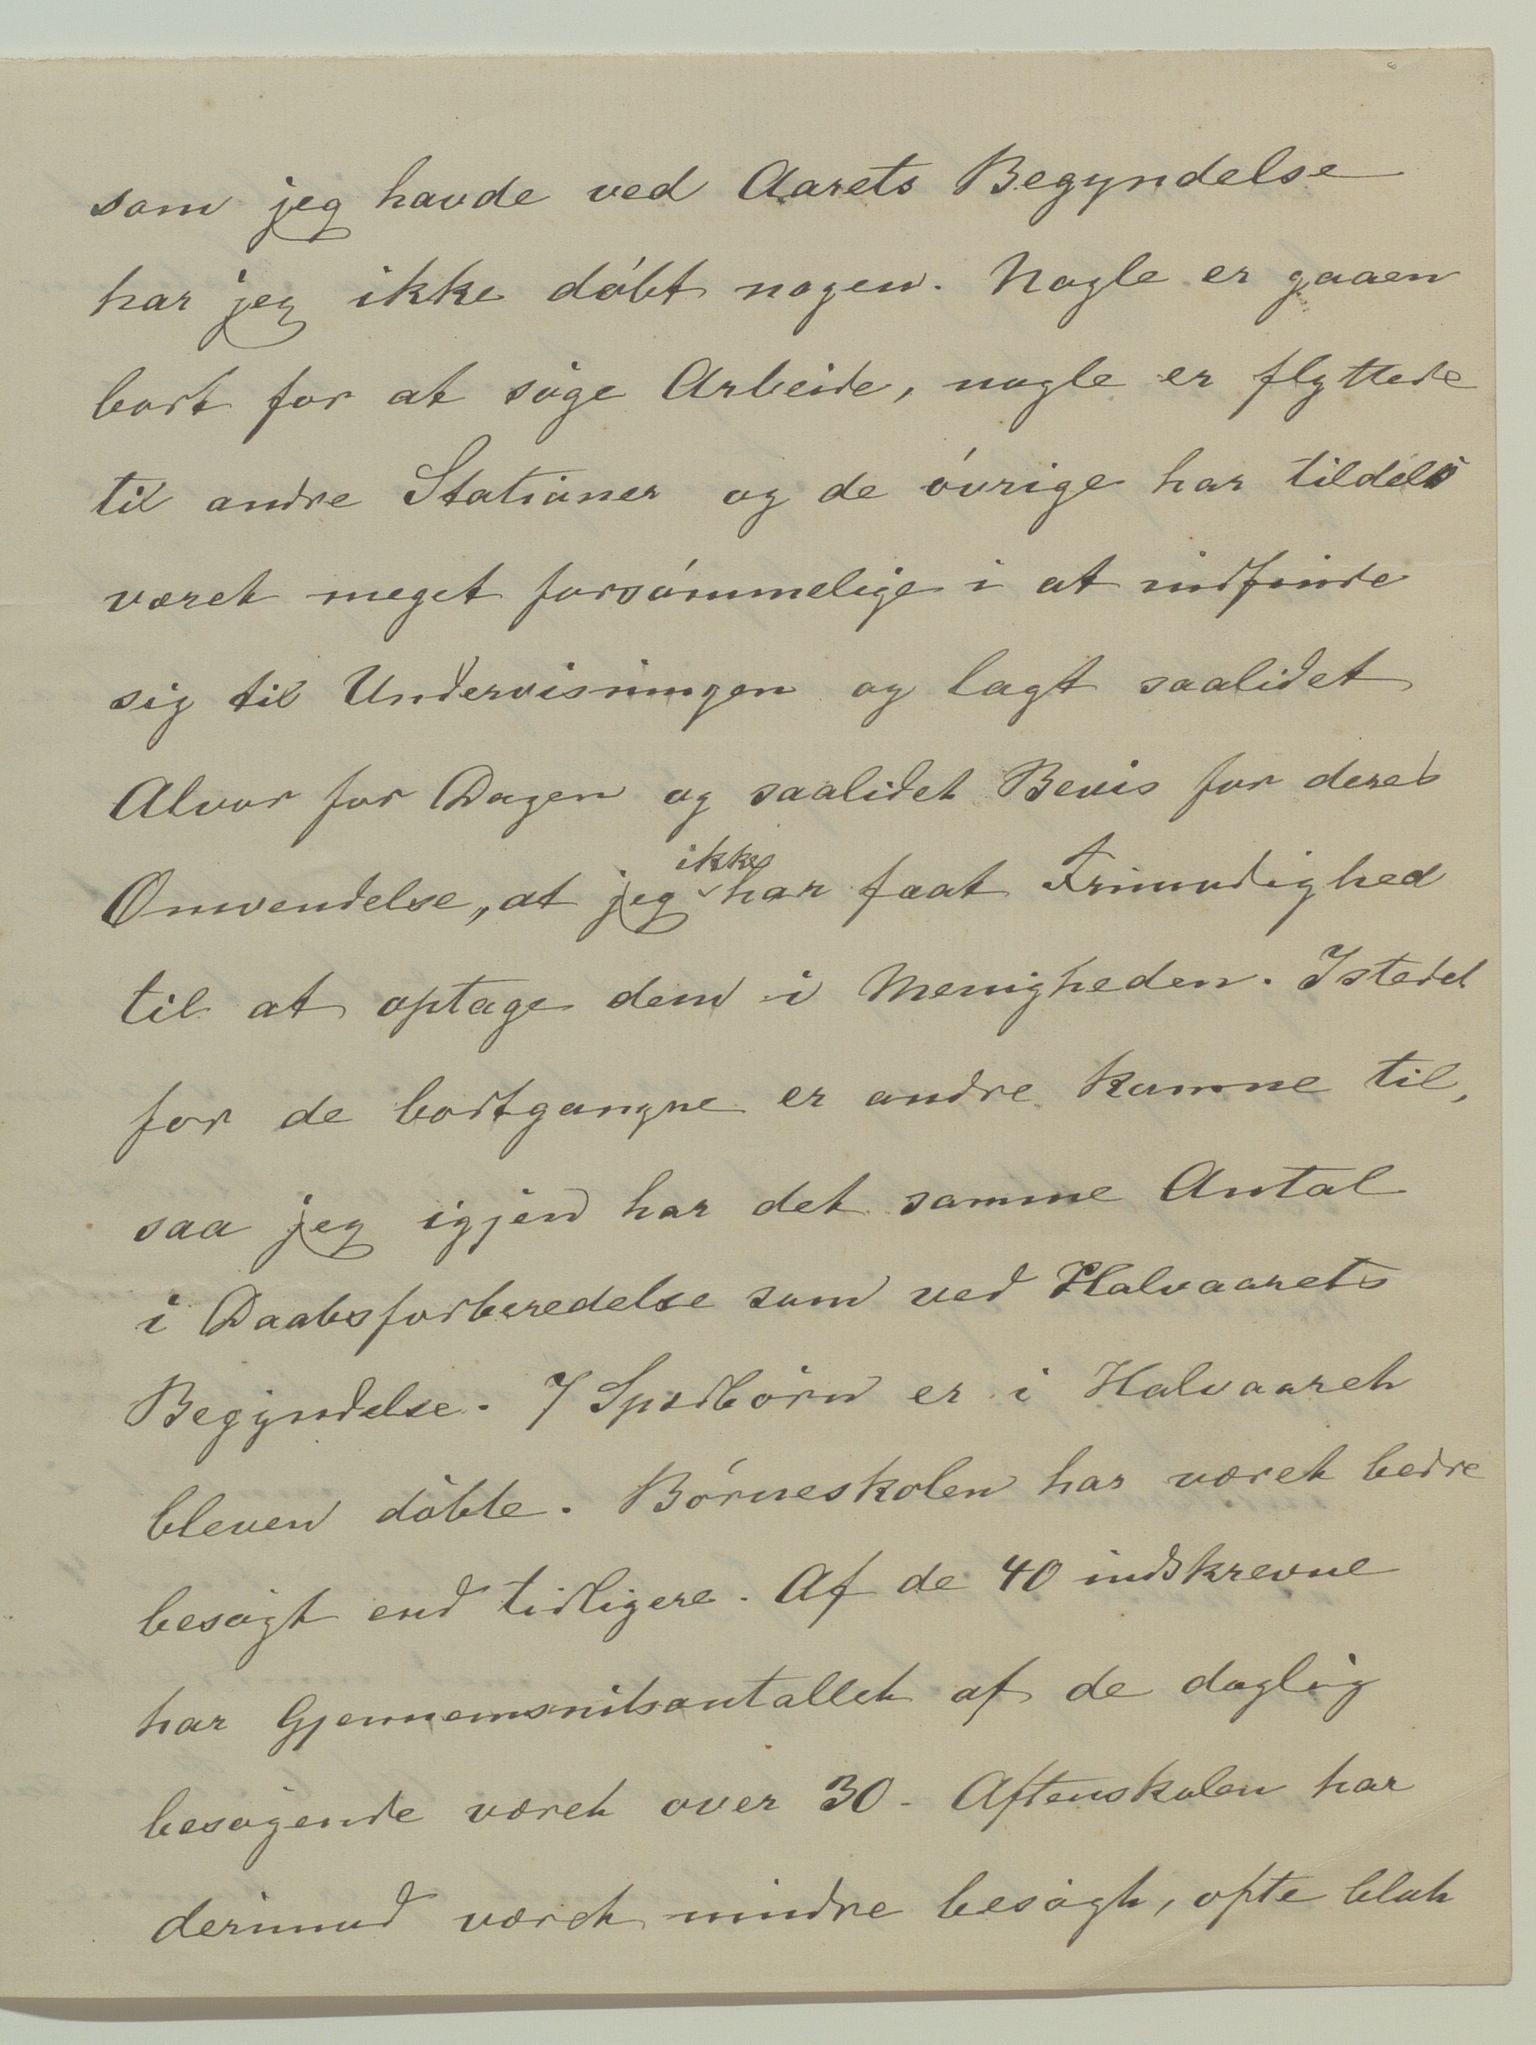 som jeg havde ved Aarets Begyndelse
har jeg ikke döbt nogen. Nogle er gaaen
bort for at söge Arbeide, nogle er flyttede
til andre Stationer og de övrige har tildels
været meget forsömmelige i at indfinde
sig til Undervisningen og lagt saalidet
Alvor for Dagen og saalidet Bevis for deres
Omvendelse, at jeg ikke har faat Frimodighed
til at optage dem i Menigheden. Istedet
for de bortgangne er andre komne til,
saa jeg igjen har det samme Antal
i Daabsforberedelse som ved Halvaarets
Begyndelse. 7 Spædbörn er i Halvaaret
bleven döbte. Börneskolen har været bedre
besögt end tidligere. Af de 40 indskrevne
har Gjennemsnitsantallet af de daglig
besögende været over 30. Aftenskolen har
derimod været mindre besögt, ofte blot